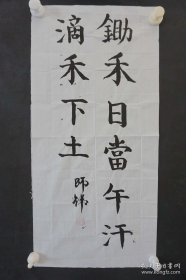 鋤禾日當午汗
滴禾下土